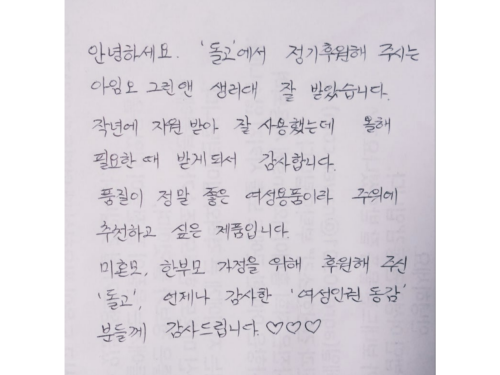 안녕하세요. '돌고'에서 정기후원해 주시는
아임오 그린앤 생리대 잘 받았습니다.
작년에 지원 받아 잘 사용했는데 올해
필요한 때 받게되서 감사합니다.
품질이 정말 좋은 여성용품이라 주위에
추천하고 싶은 제품입니다.
미혼모, 한부모 가정을 위해 후원해 주신
'돌고', 언제나 감사한 '여성인권 동감'
분들께 감사드립니다.♡♡♡